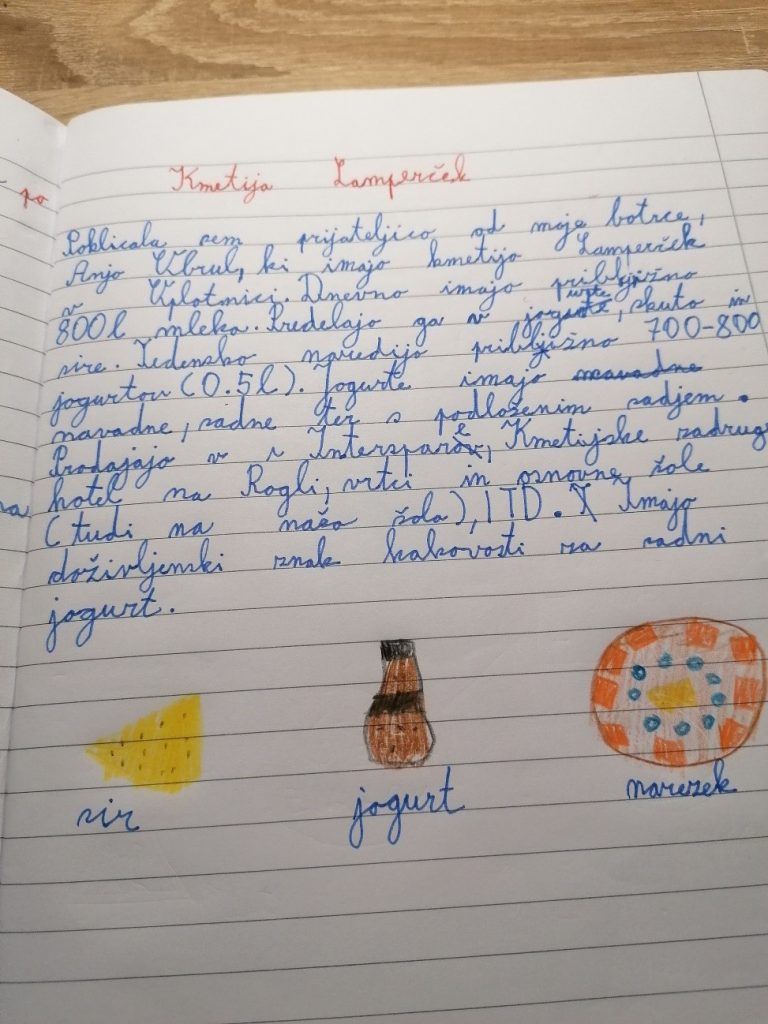 po
Kmetija Lamperček
Poklicala sem prijateljico od moje botrce,
Anjo Vbrul, ki imajo kmetijo Lamperček
v Vplotnici. Dnevno imajo približno
800l mleka. Predelajo ga v jogurte, skuto in
sire. Tedensko naredijo približno 700-800
jogurtov (0.5l). Jogurte imajo navadne
navadne, sadne ter s podloženim sadjem.
Prodajajo v Intersparé, Kmetijske zadrug
hotel na Rogli, vrtci in osnovne šole
na
(tudi na našo šola), ITD. Imajo
doživljenski znak kakovosti za sadni
jogurt.
sir
jogurt
narezek